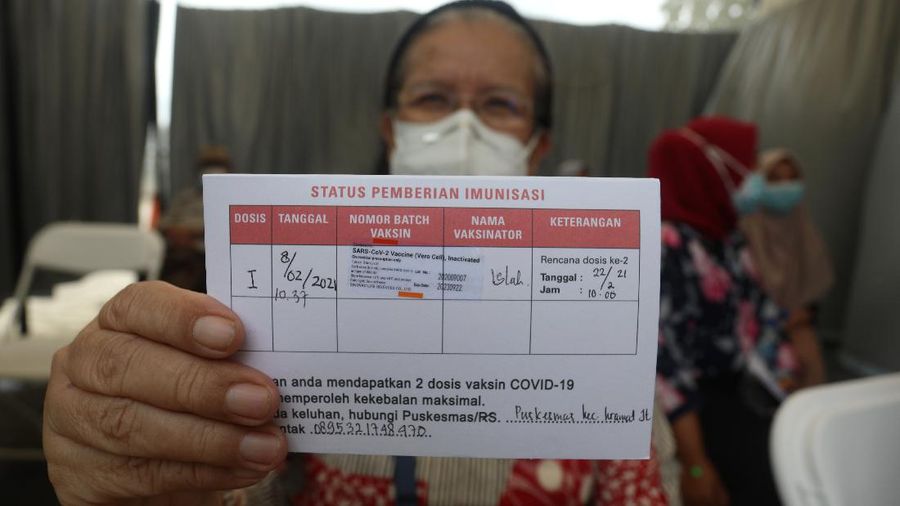 STATUS PEMBERIAN IMUNISASI
DOSIS TANGGAL NOMOR BATCH VAKSIN NAMA VAKSINATOR KETERANGAN
I 8/02/2021 10.37
SARS-CoV-2 Vaccine (Vero Cell), Inactivated
202009007
20230922
Islah
Rencana dosis ke-2
Tanggal : 22/2 21
Jam : 10.00
an anda mendapatkan 2 dosis vaksin COVID-19
emperoleh kekebalan maksimal.
a keluhan, hubungi Puskesmas/RS. Puskesmas kec. kramat Jt
ntak 0895321748470